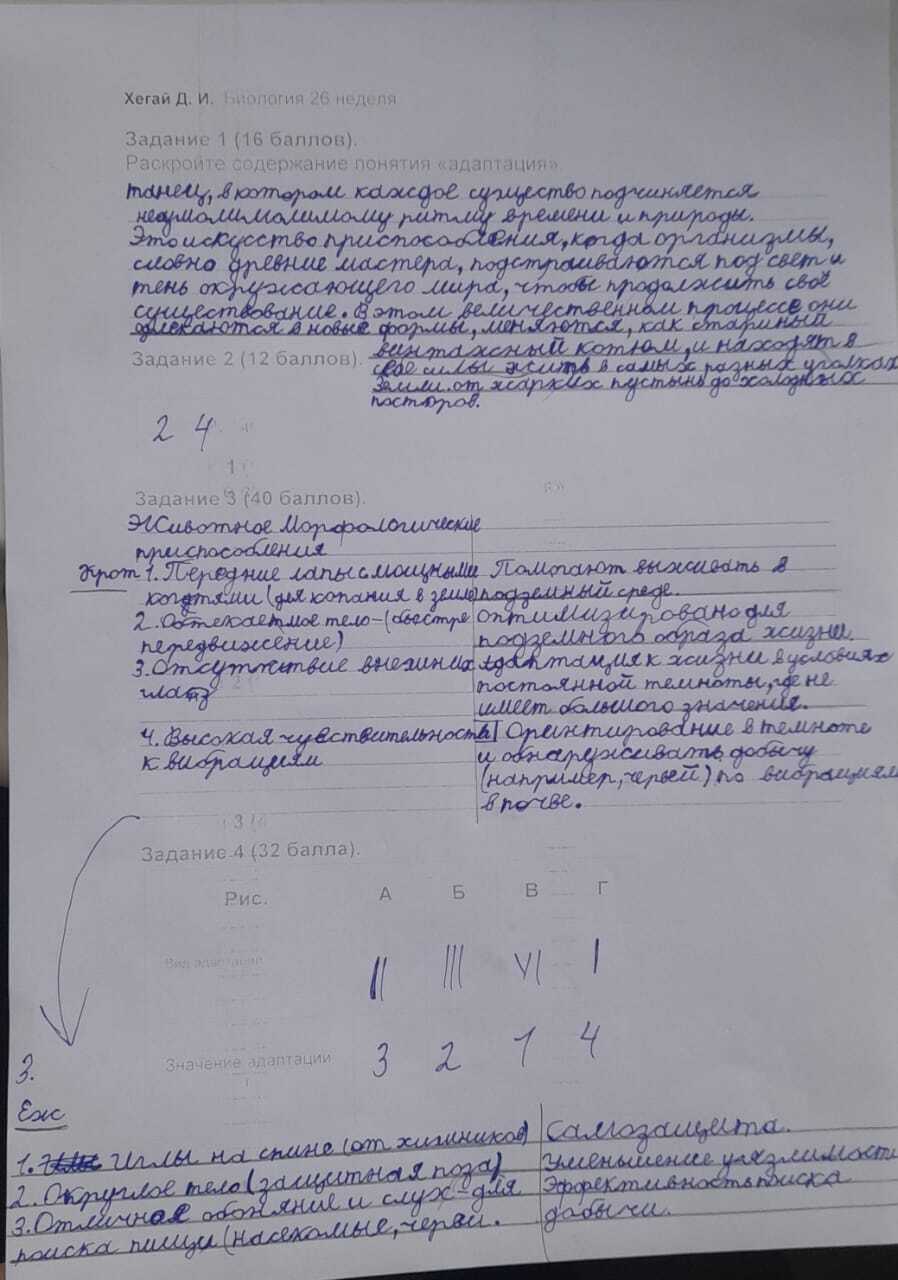 Хегай Д. И. Биология 26 неделя
Задание 1 (16 баллов).
Раскройте содержание понятия «адаптация».
танец, в котором каждое существо подчиняется
неумолимолимому ритму времени и природы.
Это искусство приспособления, когда организмы,
словно древние мастера, подстраиваются под свет и
тень окружающего мира, чтобы продолжить своё
существование. В этом величественном процессе они
облекаются в новые формы, меняются, как стариный
винтажный котюм, и находят в
себе силы жить в самых разных уголках
Земли. от жарких пустынь до холодных
Задание 2 (12 баллов).
2 4
1
Задание 3 (40 баллов).
Животное Морфологические
приспособления
Крот 1. Передние лапы с мощными Помогают выживать в
когтями (для копания в земле) подземный среде.
2. Обтекаемое тело - (быстре оптимизировано для
передвижение) подземного образа жизни
3. Отсутствие внешних адаптация к жизни в условиях
глаз постоянной темноты, где не
имеет большого значения.
4. Высокая чувствительность Ориентирование в темноте
к вибрациям и обнаруживать добычу
(например, червей) по вибрациям
в почве.
3
Задание 4 (32 балла).
Рис. А Б В Г
Вид адаптации II III VI I
Значение адаптации 3 2 1 4
3.
Еж
1. Иглы на спине (от хищников) Самозащита.
2. Округлое тело (защитная поза) Уменьшение уязлимости
3. Отличная обоняние и слух - для Эффективность поиска
поиска пищи (насекомые, черви. добычи.